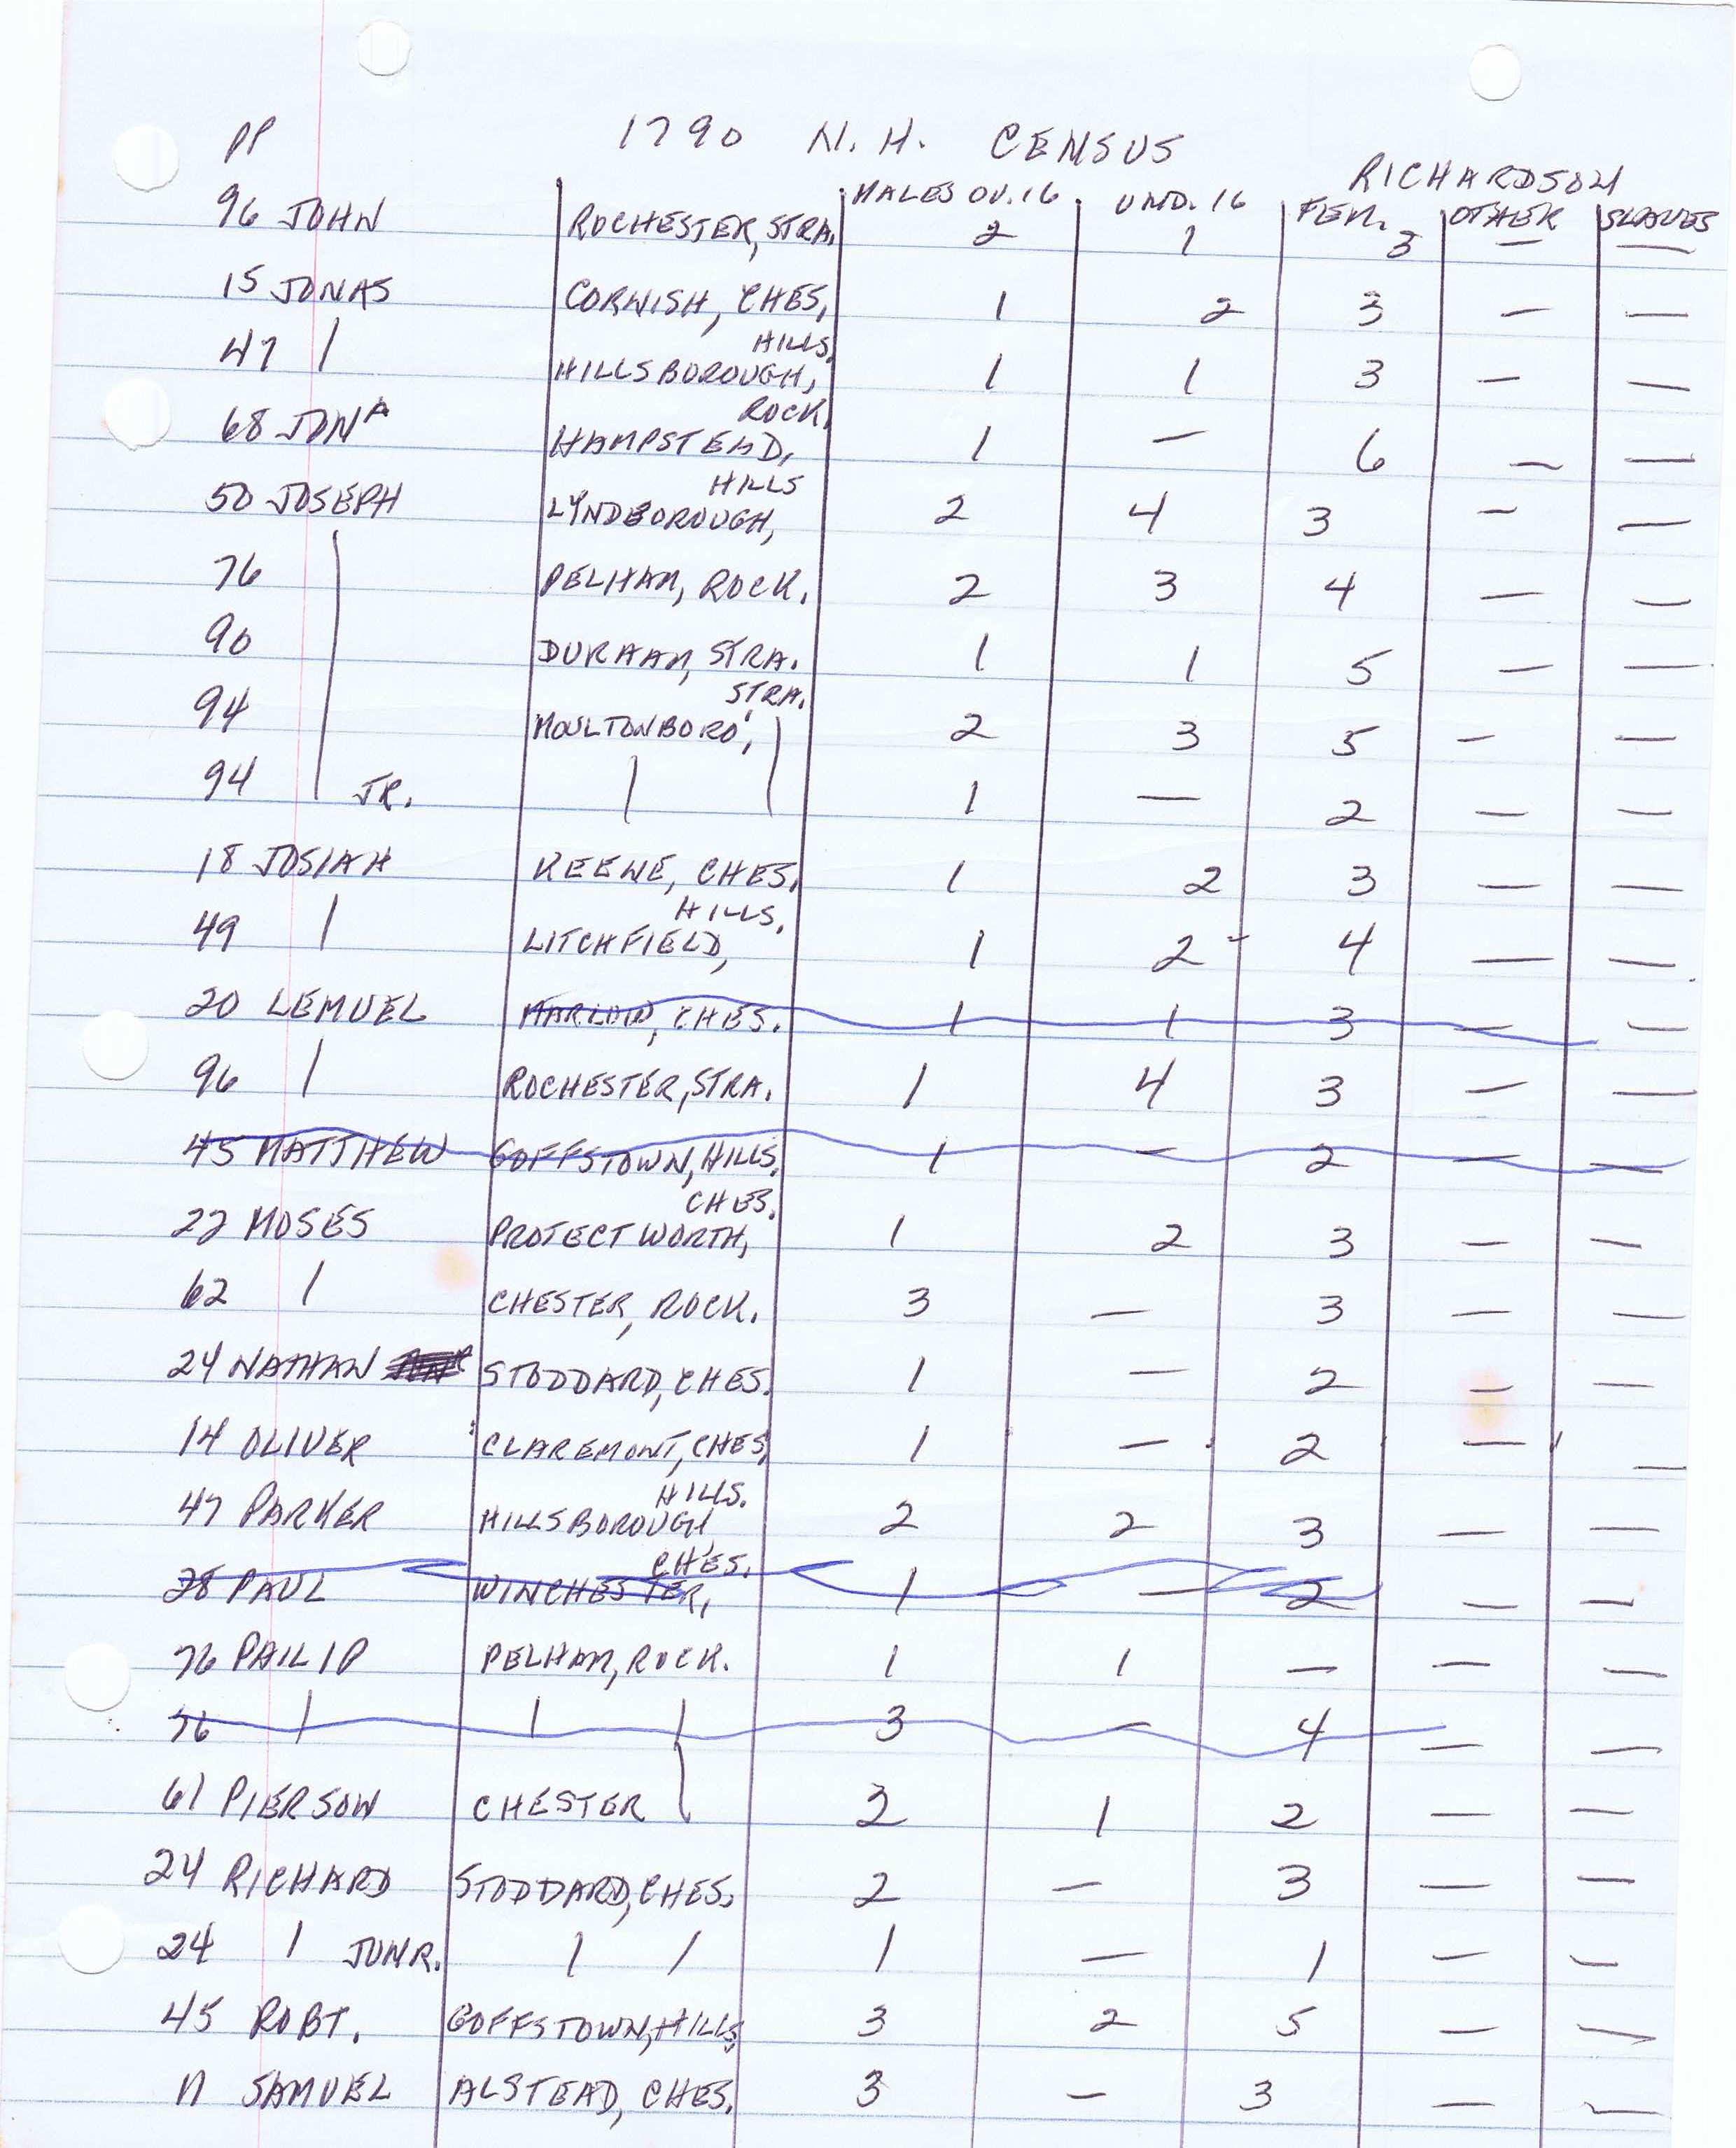 PP 1790 N. H. CENSUS RICHARDSON
MALES OV. 16 UND. 16 FEM. OTHER SLAVES
96 JOHN ROCHESTER, STRA. 2 1 3 — —
15 JONAS CORNISH, CHES, 1 2 3 — —
HILLS.
47 | HILLSBOROUGH, 1 1 3 — —
ROCK,
68 JONA HAMPSTEAD, 1 — 6 — —
HILLS
50 JOSEPH LYNDBOROUGH, 2 4 3 — —
76 PELHAM, ROCK. 2 3 4 — —
90 DURHAM, STRA. 1 1 5 — —
STRA.
94 MOULTONBORO', 2 3 5 — —
94 | JR. | | 1 — 2 — —
18 JOSIAH KEENE, CHES. 1 2 3 — —
HILLS.
49 | LITCHFIELD, 1 2 4 — —
20 LEMUEL MARLOW, CHES. 1 1 3 — —
96 | ROCHESTER, STRA. 1 4 3 — —
45 MATTHEW GOFFSTOWN, HILLS. 1 — 2 — —
CHES.
22 MOSES PROTECTWORTH, 1 2 3 — —
62 | CHESTER, ROCK. 3 — 3 — —
24 NATHAN STODDARD, CHES. 1 — 2 — —
14 OLIVER CLAREMONT, CHES, 1 — 2 — —
HILLS.
47 PARKER HILLSBOROUGH 2 2 3 — —
CHES.
28 PAUL WINCHESTER, 1 — 2 — —
76 PHILIP PELHAM, ROCK. 1 1 — — —
76 | | | 3 — 4 — —
61 PIERSON CHESTER | 2 1 2 — —
24 RICHARD STODDARD, CHES. 2 — 3 — —
24 | JUNR. | / 1 — 1 — —
45 ROBT. GOFFSTOWN, HILLS 3 2 5 — —
11 SAMUEL ALSTEAD, CHES. 3 — 3 — —